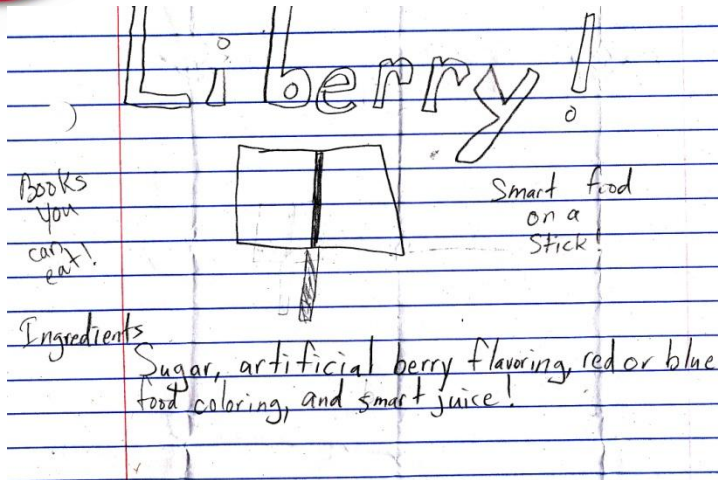 Liberry!
Books
you
can
eat!
Smart food
on a
Stick!
Ingredients
Sugar, artificial berry flavoring, red or blue
food coloring, and smart juice!